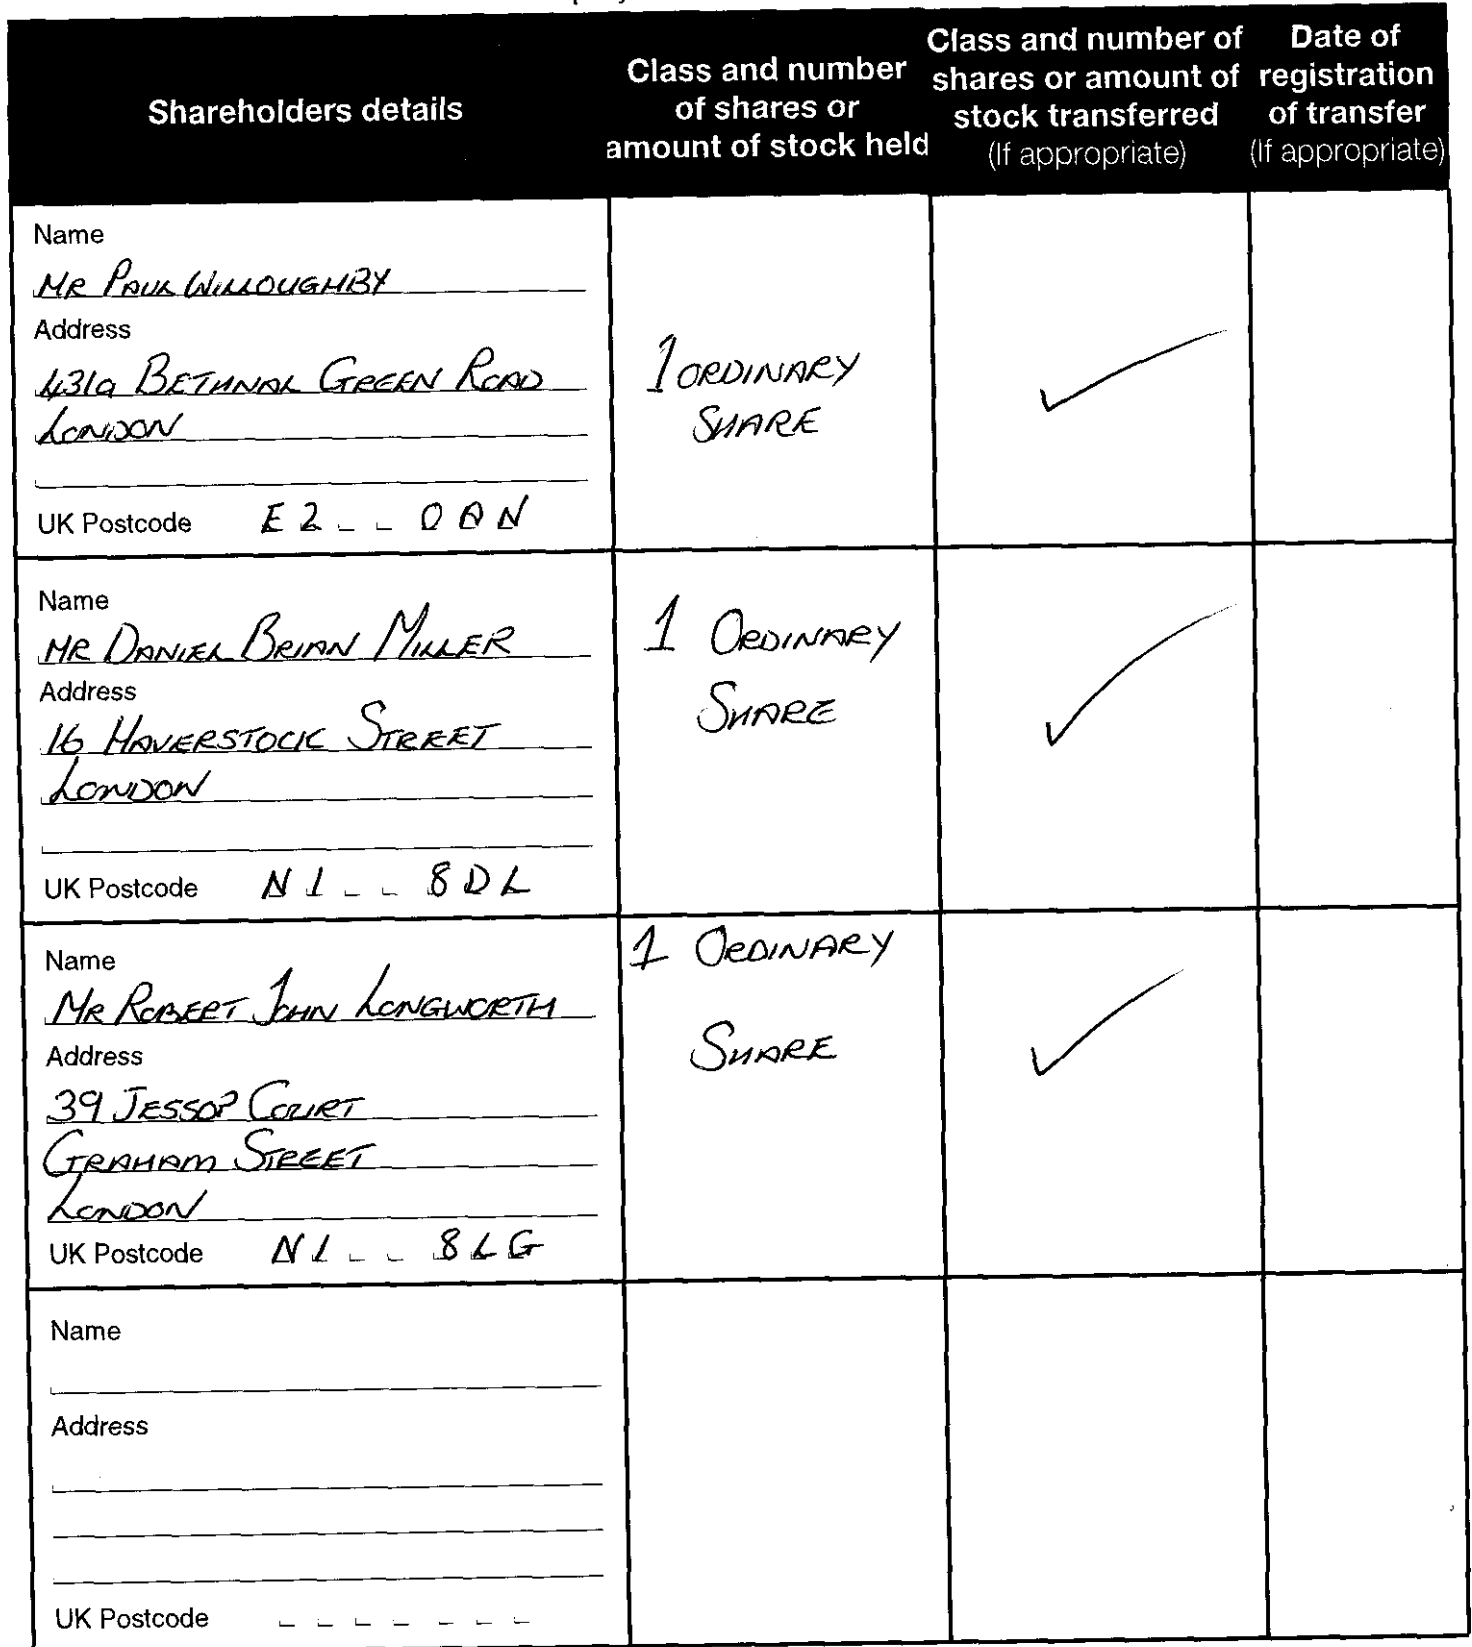 Shareholders details
Class and number
of shares or
amount of stock held
Class and number of
shares or amount of
stock transferred
(If appropriate)
Date of
registration
of transfer
(If appropriate)
Name
MR PAUL WILLOUGHBY
Address
431a BETHNAL GREEN ROAD
LONDON
UK Postcode E2 0AN
1 ORDINARY
SHARE
✓
Name
MR DANIEL BRIAN MILLER
Address
16 HAVERSTOCK STREET
LONDON
UK Postcode N1 8DL
1 ORDINARY
SHARE
✓
Name
MR ROBERT JOHN LONGWORTH
Address
39 JESSOP COURT
GRAHAM STREET
LONDON
UK Postcode N1 8LG
1 ORDINARY
SHARE
✓
Name
Address
UK Postcode